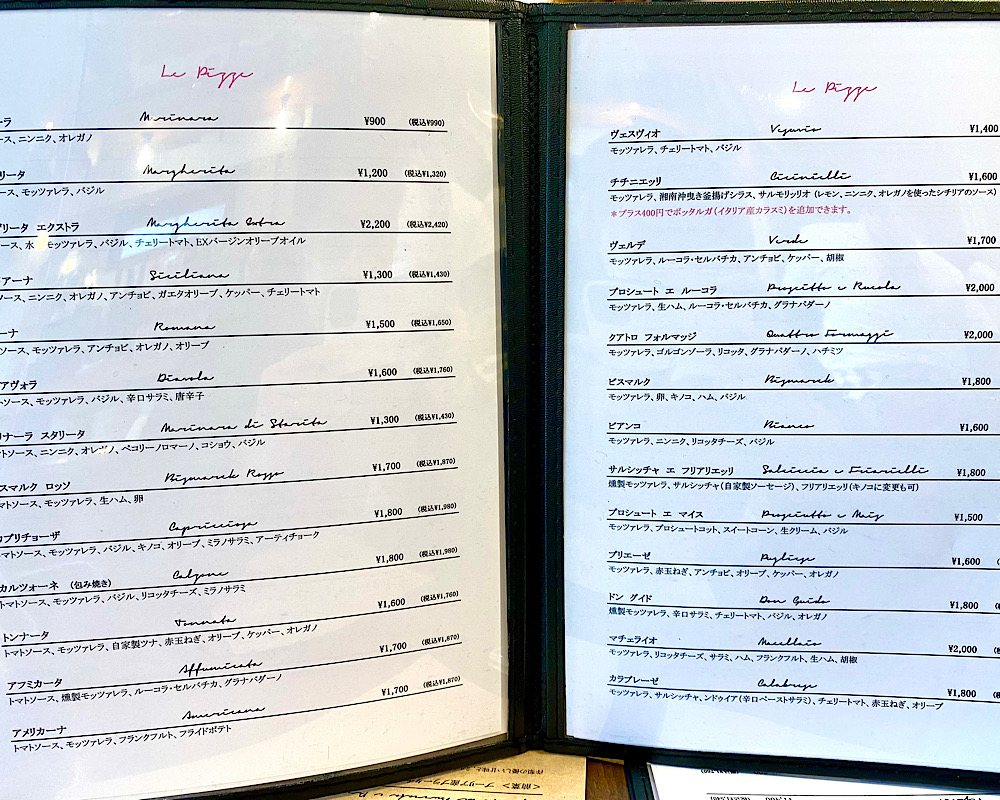 Le Pizze
ーラ Marinara ¥900 (税込¥990)
ース、ニンニク、オレガノ
リータ Margherita ¥1,200 (税込¥1,320)
ース、モッツァレラ、バジル
リータ エクストラ Margherita Extra ¥2,200 (税込¥2,420)
ース、水 モッツァレラ、バジル、チェリートマト、EXバージンオリーブオイル
アーナ Siciliana ¥1,300 (税込¥1,430)
ソース、ニンニク、オレガノ、アンチョビ、ガエタオリーブ、ケッパー、チェリートマト
ーナ Romana ¥1,500 (税込¥1,650)
ソース、モッツァレラ、アンチョビ、オレガノ、オリーブ
アヴォラ Diavola ¥1,600 (税込¥1,760)
トソース、モッツァレラ、バジル、辛口サラミ、唐辛子
リナーラ スタリータ Marinara di Starita ¥1,300 (税込¥1,430)
トソース、ニンニク、オレガノ、ペコリーノロマーノ、コショウ、バジル
スマルク ロッソ Bismarck Rosso ¥1,700 (税込¥1,870)
マトソース、モッツァレラ、生ハム、卵
カプリチョーザ Capricciosa ¥1,800 (税込¥1,980)
マトソース、モッツァレラ、バジル、キノコ、オリーブ、ミラノサラミ、アーティチョーク
カルツォーネ (包み焼き) Calzone ¥1,800 (税込¥1,980)
トマトソース、モッツァレラ、バジル、リコッタチーズ、ミラノサラミ
トンナータ Tonnata ¥1,600 (税込¥1,760)
トマトソース、モッツァレラ、自家製ツナ、赤玉ねぎ、オリーブ、ケッパー、オレガノ
アフミカータ Affumicata ¥1,700 (税込¥1,870)
トマトソース、燻製モッツァレラ、ルーコラ・セルバチカ、グラナパダーノ
アメリカーナ Americana ¥1,700 (税込¥1,870)
トマトソース、モッツァレラ、フランクフルト、フライドポテト
Le Pizze
ヴェスヴィオ Vesuvio ¥1,400
モッツァレラ、チェリートマト、バジル
チチニエッリ Cicinielli ¥1,600
モッツァレラ、湘南沖曳き釜揚げシラス、サルモリッリオ (レモン、ニンニク、オレガノを使ったシチリアのソース)
＊プラス400円でボッタルガ(イタリア産カラスミ)を追加できます。
ヴェルデ Verde ¥1,700
モッツァレラ、ルーコラ・セルバチカ、アンチョビ、ケッパー、胡椒
プロシュート エ ルーコラ Prosciutto e Rucola ¥2,000
モッツァレラ、生ハム、ルーコラ・セルバチカ、グラナパダーノ
クアトロ フォルマッジ Quattro Formaggi ¥2,000
モッツァレラ、ゴルゴンゾーラ、リコッタ、グラナパダーノ、ハチミツ
ビスマルク Bismarck ¥1,800
モッツァレラ、卵、キノコ、ハム、バジル
ビアンコ Bianco ¥1,600
モッツァレラ、ニンニク、リコッタチーズ、バジル
サルシッチャ エ フリアリエッリ Salsiccia e Friarielli ¥1,800
燻製モッツァレラ、サルシッチャ(自家製ソーセージ)、フリアリエッリ(キノコに変更も可)
プロシュート エ マイス Prosciutto e Mais ¥1,500
モッツァレラ、プロシュートコット、スイートコーン、生クリーム、バジル
プリエーゼ Pugliese ¥1,600
モッツァレラ、赤玉ねぎ、アンチョビ、オリーブ、ケッパー、オレガノ
ドン グイド Don Guido ¥1,800
燻製モッツァレラ、辛口サラミ、チェリートマト、バジル、オレガノ
マチェライオ Macellaio ¥2,000
モッツァレラ、リコッタチーズ、サラミ、ハム、フランクフルト、生ハム、胡椒
カラブレーゼ Calabrese ¥1,800
モッツァレラ、サルシッチャ、ンドゥイア(辛口ペーストサラミ)、チェリートマト、赤玉ねぎ、オリーブ